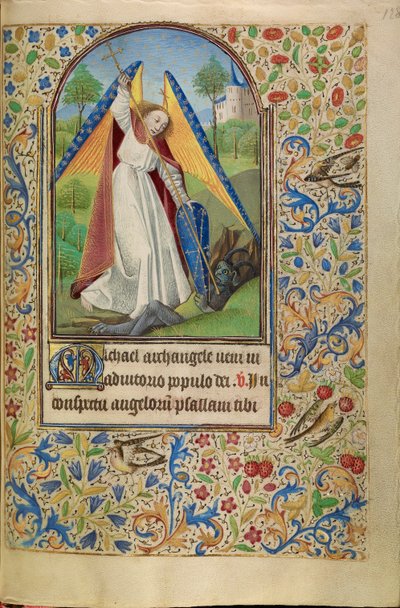 Michael archangele ueni in
adiutorio populo dei. V. In
conspectu angelorū psallam tibi